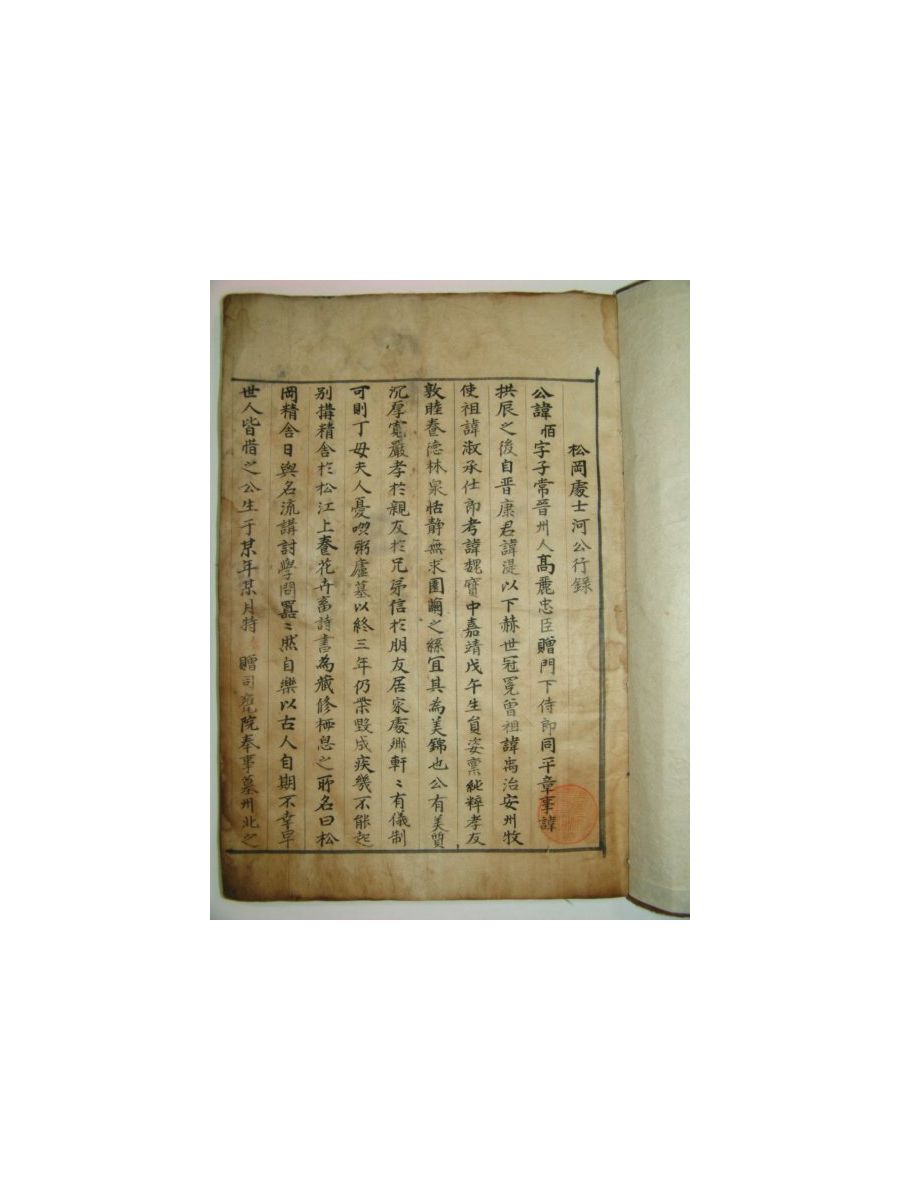 松岡處士河公行錄
公諱恒字子常晉州人高麗忠臣贈門下侍郎同平章事諱
拱辰之後自晉康君諱湜以下赫世冠冕曾祖諱禹治安州牧
使祖諱淑承仕郎考諱魏寶中嘉靖戊午生員姿稟純粹孝友
敦睦養德林泉恬靜無求園繭之絲宜其為美錦也公有美質
沉厚寬嚴孝於親友於兄弟信於朋友居家處鄉軒〻有儀制
可則丁母夫人憂啜粥廬墓以終三年仍帶毀成疾幾不能起
別搆精舍於松江上養花卉畜詩書為藏修極息之所名曰松
岡精舍日與名流講討學問囂〻然自樂以古人自期不幸早
世人皆惜之公生于某年某月持 贈司饔院奉事墓州北之